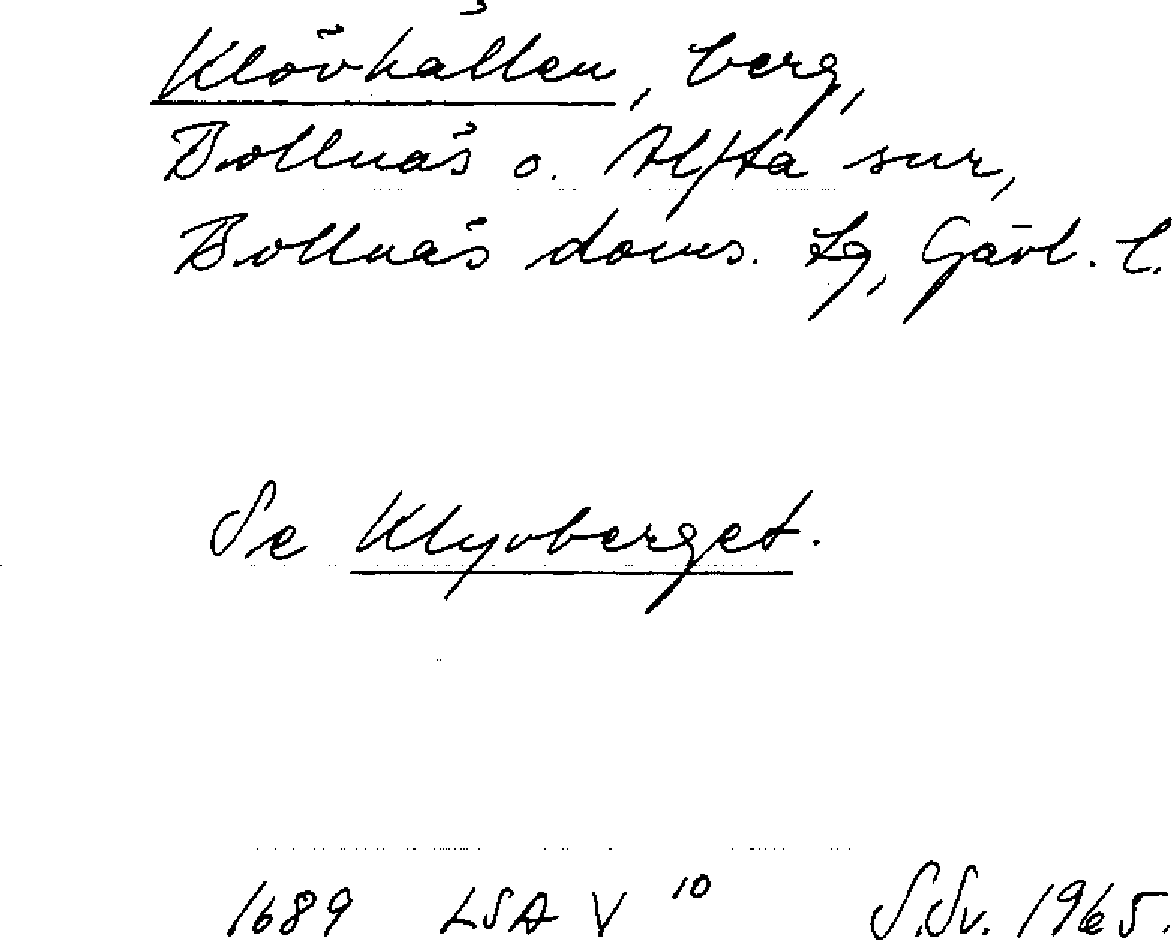 Klövhällen, berg,
Bollnäs o. Alfta snr,
Bollnäs doms. lg, Gävl. l.
Se Klyvberget.
1689 LSA V 10 S.Sv. 1965.